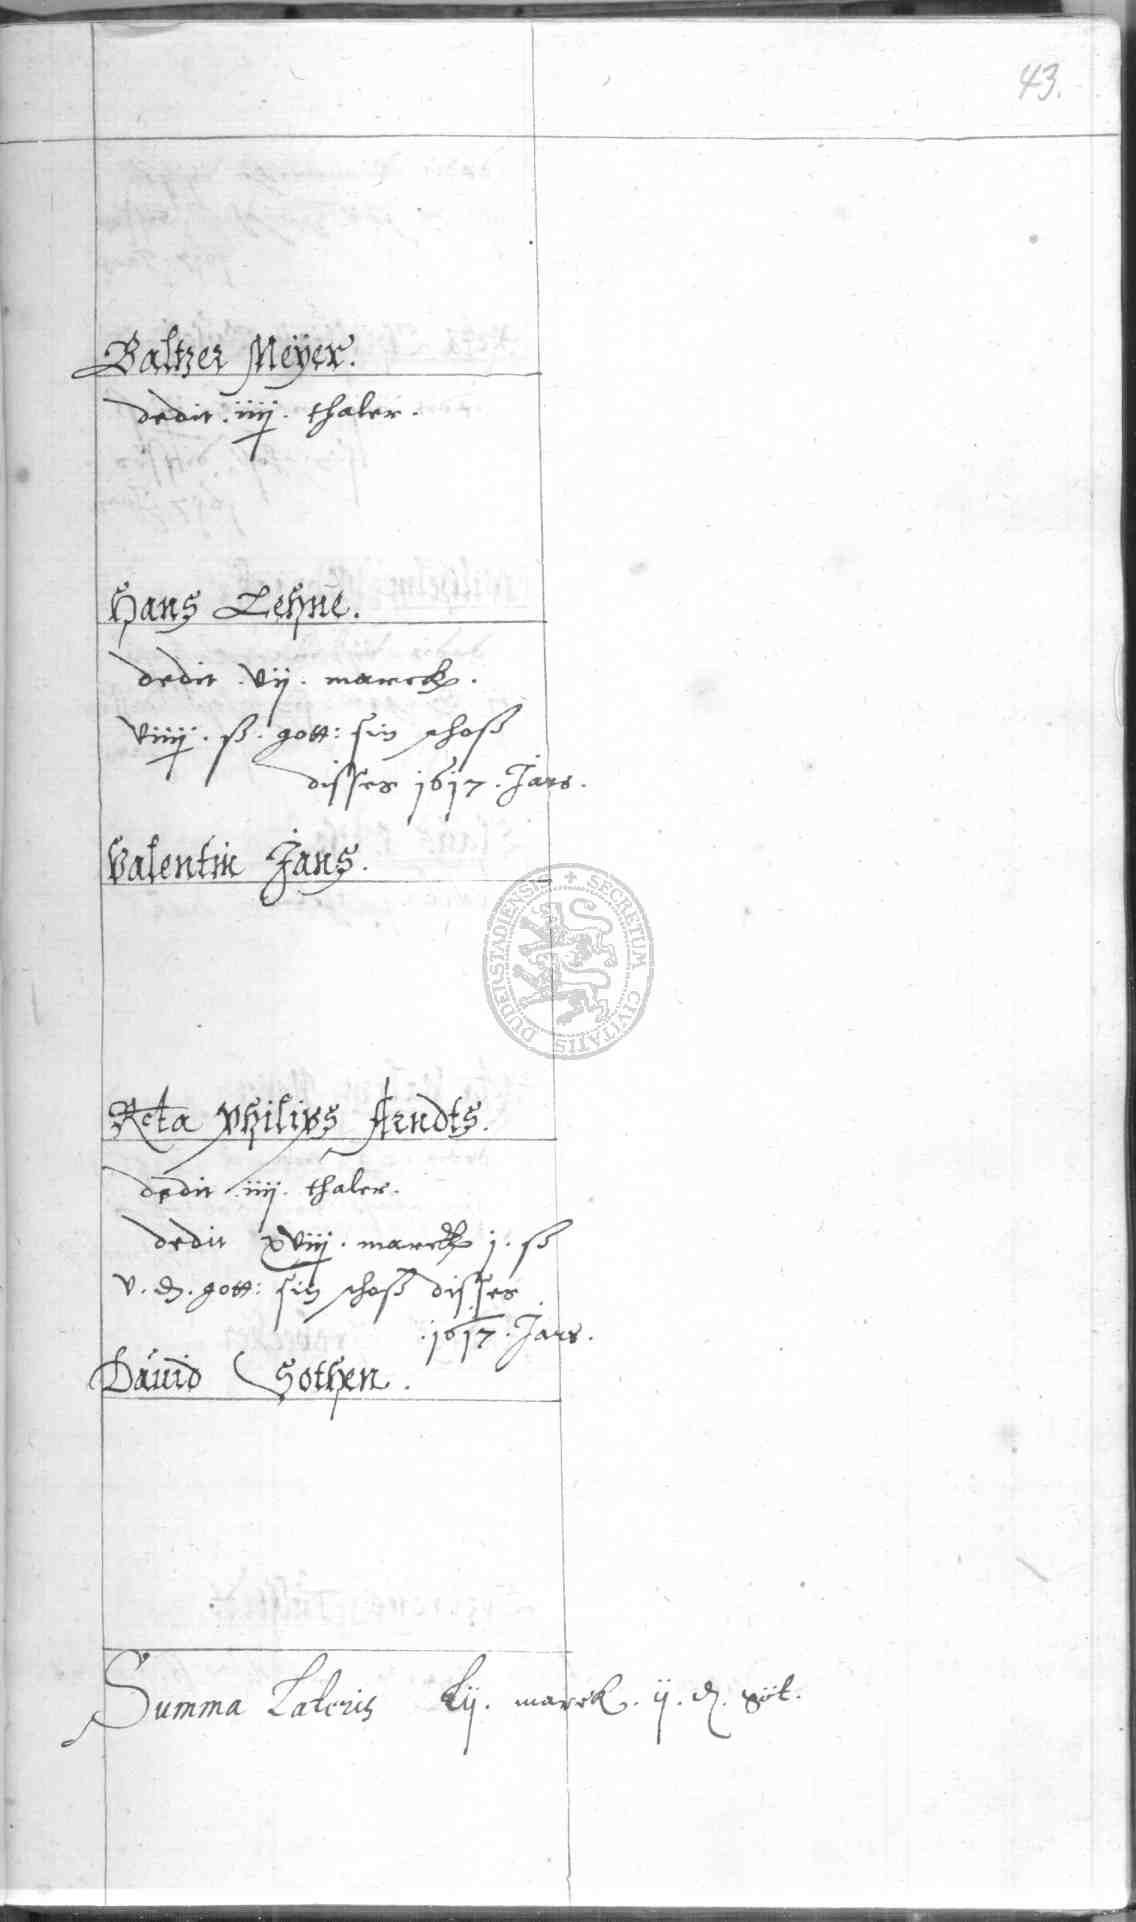 43.
Baltzer Meÿer.
dedit . iiij . thaler .
Hans Lehne.
dedit . vij . marck .
viiij . ß . gott: sin schoß
disses 1617 . Jars .
Valentin Jans .
Relicta Philips Arndts.
dedit iiij . thaler .
dedit xviij . marck j . ß
v . d . gott: sin schoß disses
. 1617 . Jars .
Dauid Gothen .
Summa Lateris Lij . marck . ij . d . gôt .
DUDERSTADIENSIS + SECRETUM CIVITATIS